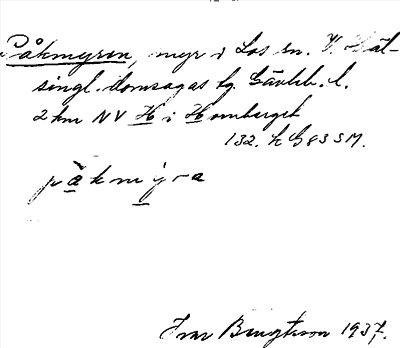 Påkmyren, myr i Los sn. V. Häl-
singl. domsagas tg. Gävleb. l.
2 km NV H i Homberget
132. h G 83 SM.
påkmyra
Ivar Bengtsson 1937.